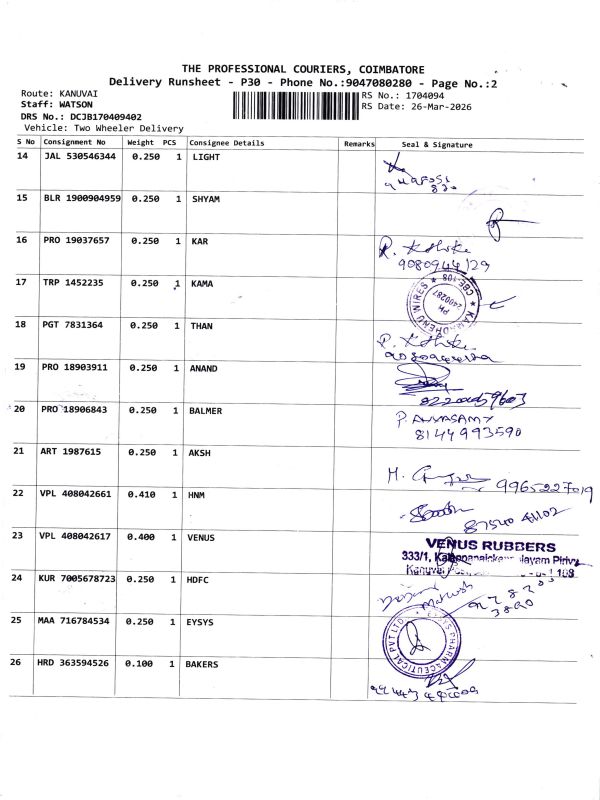 THE PROFESSIONAL COURIERS, COIMBATORE
Delivery Runsheet - P30 - Phone No.:9047080280 - Page No.:2
Route: KANUVAI
RS No.: 1704094
Staff: WATSON
RS Date: 26-Mar-2026
DRS No.: DCJB170409402
Vehicle: Two Wheeler Delivery
S No Consignment No Weight PCS Consignee Details Remarks Seal & Signature
14 JAL 530546344 0.250 1 LIGHT
15 BLR 1900904959 0.250 1 SHYAM
16 PRO 19037657 0.250 1 KAR
9080944129
17 TRP 1452235 0.250 1 KAMA
KAMADHENU WIRES * CBE-108 *
PH
2400287
18 PGT 7831364 0.250 1 THAN
19 PRO 18903911 0.250 1 ANAND
20 PRO 18906843 0.250 1 BALMER
8144993590
21 ART 1987615 0.250 1 AKSH
9965227019
22 VPL 408042661 0.410 1 HNM
23 VPL 408042617 0.400 1 VENUS
VENUS RUBBERS
333/1,
24 KUR 7005678723 0.250 1 HDFC
25 MAA 716784534 0.250 1 EYSYS
26 HRD 363594526 0.100 1 BAKERS